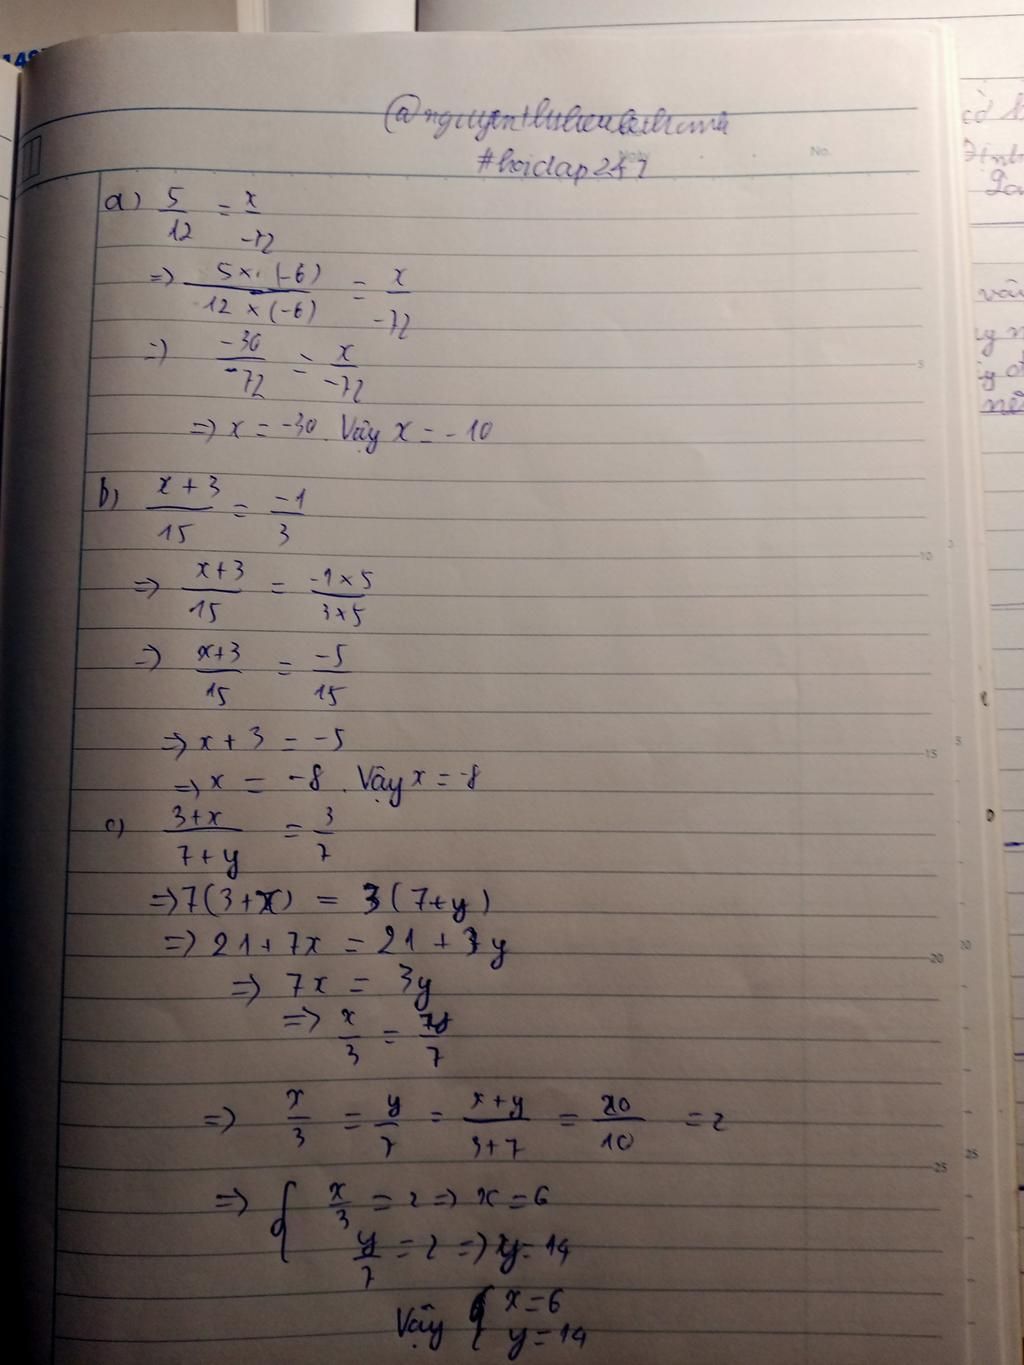 #hoidap247
No.
a) 5/12 = x/-72
=> 5x(-6)/12x(-6) = x/-72
=> -30/-72 = x/-72
=> x = -30. Vậy x = -10
b) x+3/15 = -1/3
=> x+3/15 = -1x5/3x5
=> x+3/15 = -5/15
=> x+3 = -5
=> x = -8. Vậy x = -8
c) 3+x/7+y = 3/7
=> 7(3+x) = 3(7+y)
=> 21+7x = 21+3y
=> 7x = 3y
=> x/3 = y/7
=> x/3 = y/7 = x+y/3+7 = 20/10 = 2
=> { x/3 = 2 => x = 6
y/7 = 2 => y = 14
Vậy { x = 6
y = 14